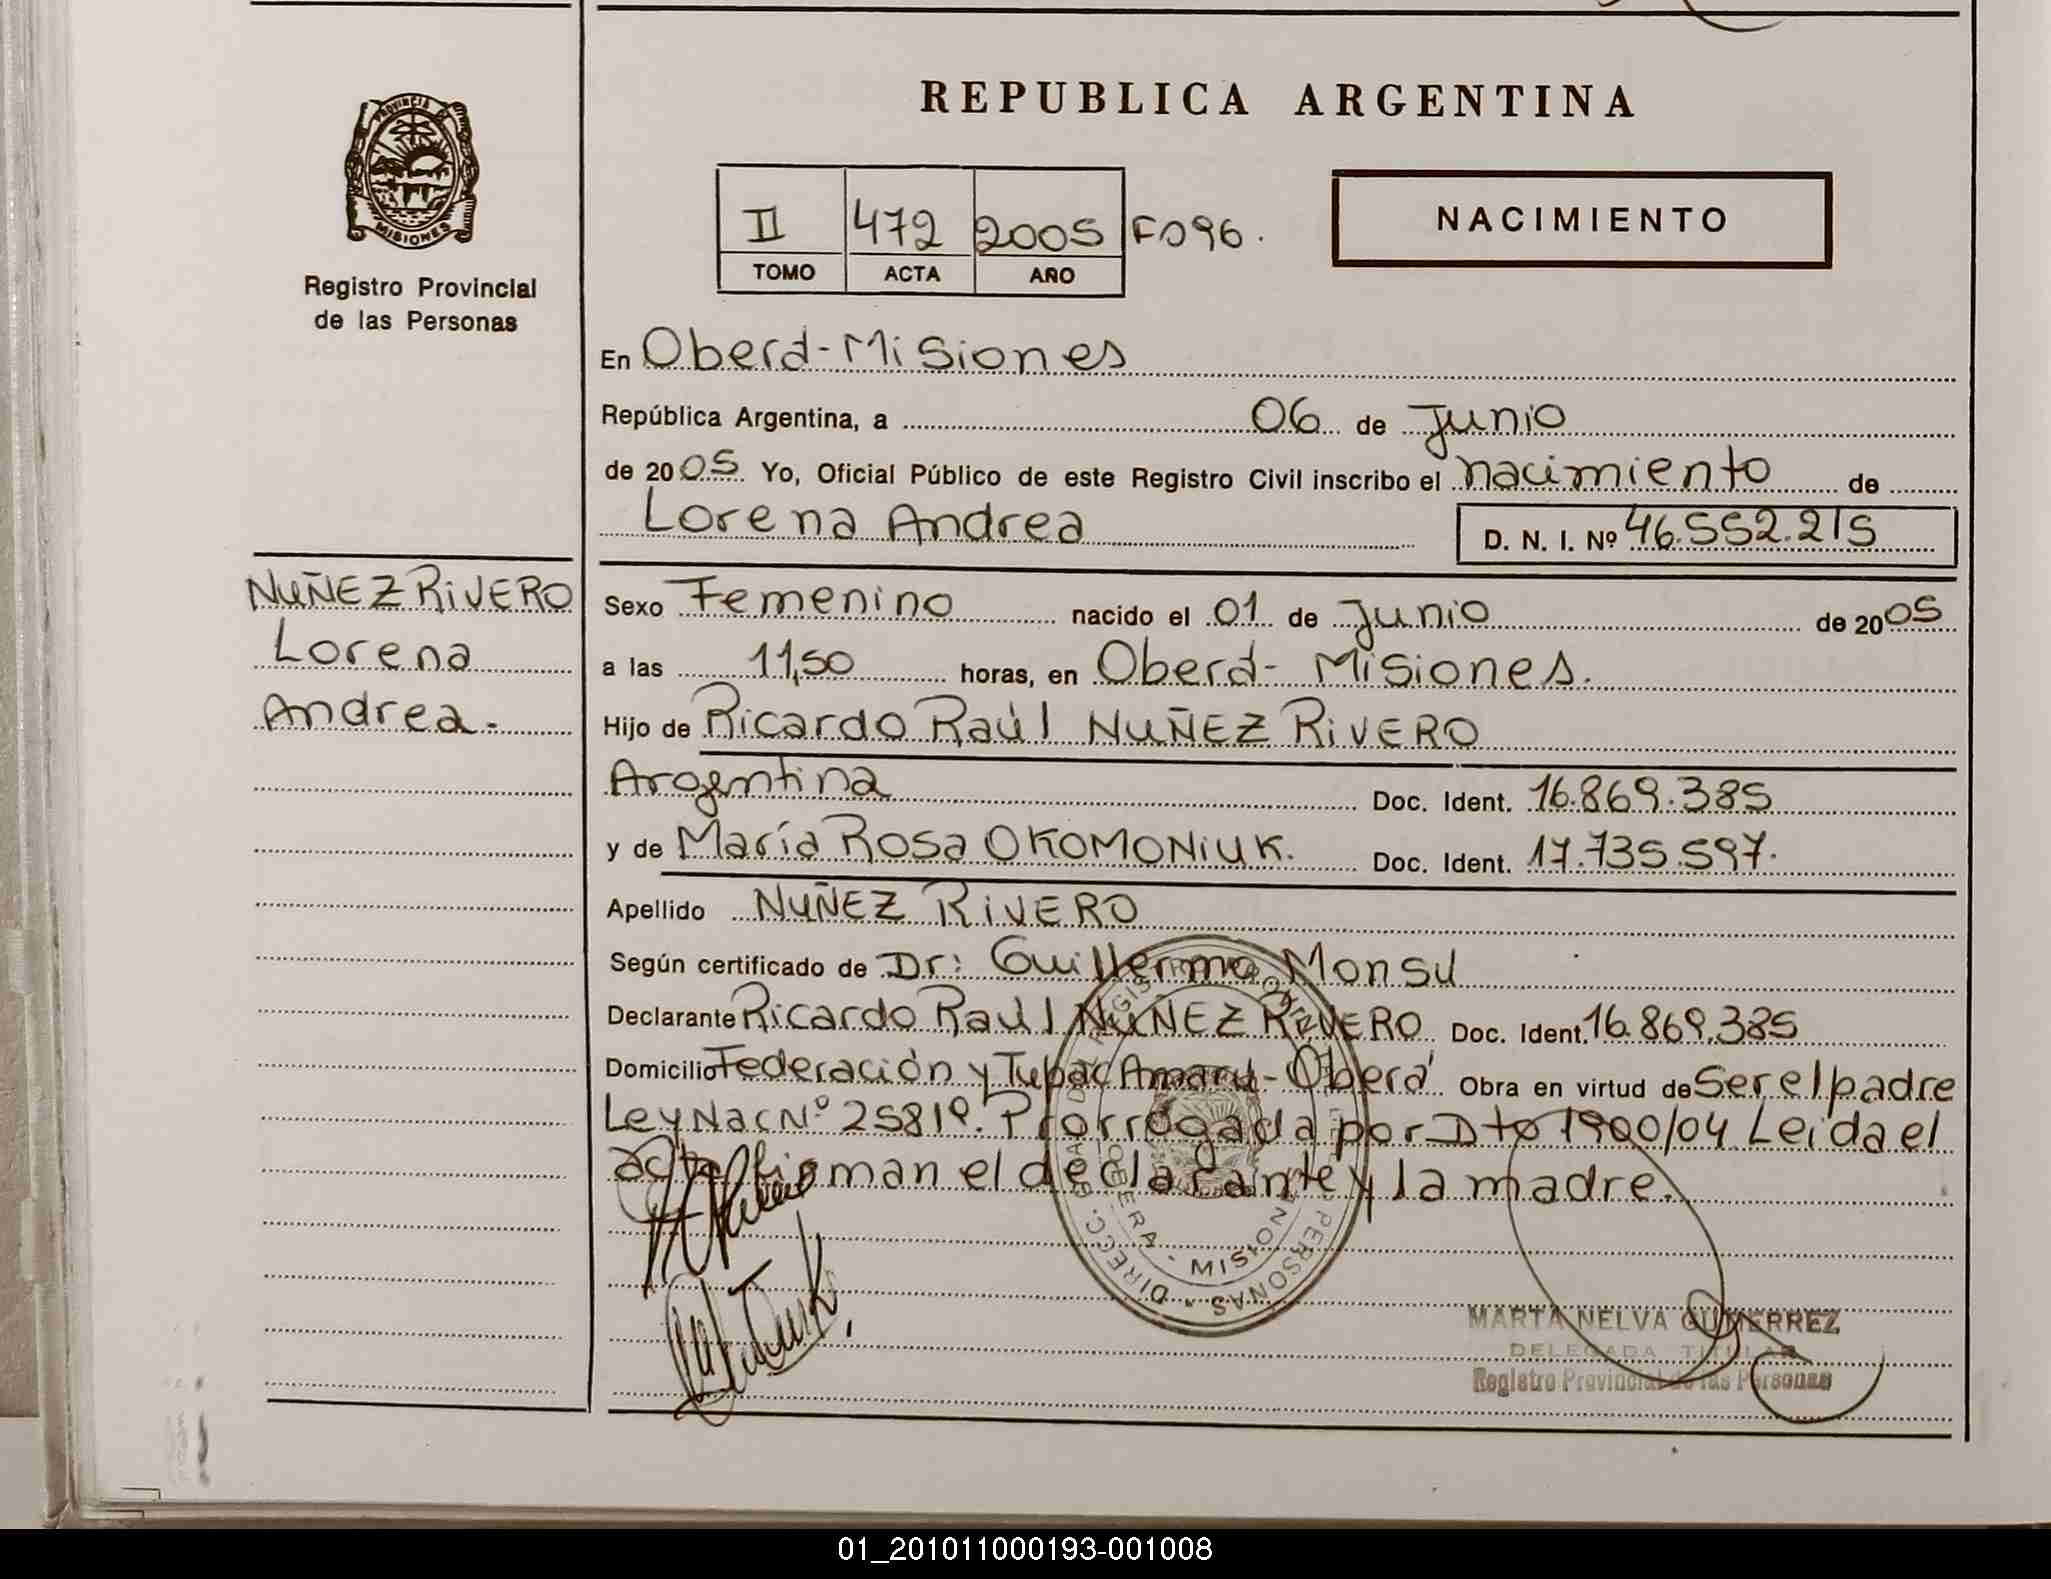 REPUBLICA ARGENTINA
PROVINCIA
MISIONES
Registro Provincial
de las Personas
II 472 2005 Fº96.
TOMO ACTA AÑO
NACIMIENTO
En Oberá-Misiones
República Argentina, a 06 de Junio
de 2005 Yo, Oficial Público de este Registro Civil inscribo el nacimiento de
Lorena Andrea D. N. I. Nº 46.552.215
NUÑEZ RIVERO
Lorena
Andrea.-
Sexo Femenino nacido el 01 de Junio de 2005
a las 11,50 horas, en Oberá- Misiones.
Hijo de Ricardo Raúl NUÑEZ RIVERO
Argentina Doc. Ident. 16.869.385
y de María Rosa OKOMONIUK. Doc. Ident. 17.735.597.
Apellido NUÑEZ RIVERO
Según certificado de Dr: Guillermo Monsu
Declarante Ricardo Raúl NUÑEZ RIVERO Doc. Ident. 16.869.385
Domicilio Federación y Tupac Amaru-Oberá Obra en virtud de Ser el padre
Ley Nac Nº 25819. Prorrogada por Dto 1900/04 Leida el
acta firman el declarante y la madre.
OBERA - MISIONES
PERSONAS - DIRECC.
MARTA NELVA GUTIERREZ
DELEGADA TITULAR
Registro Provincial de las Personas
01_201011000193-001008